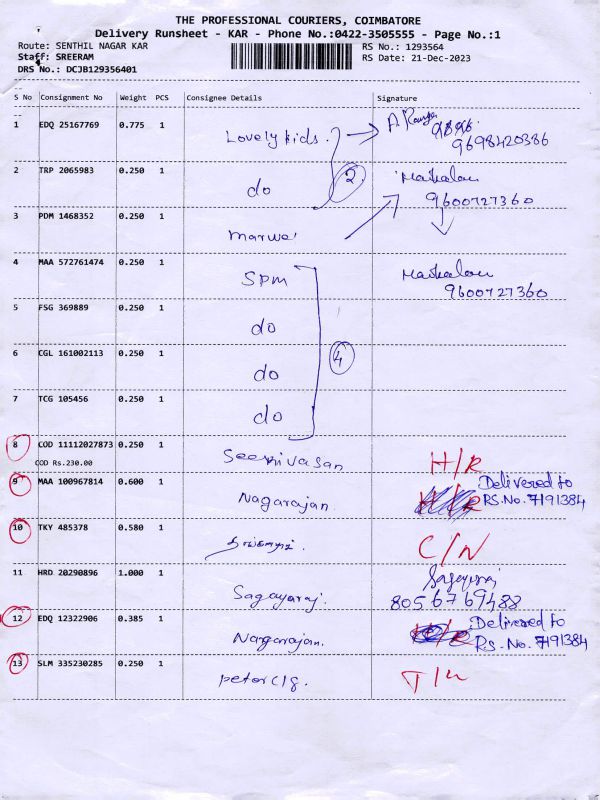 THE PROFESSIONAL COURIERS, COIMBATORE
Delivery Runsheet - KAR - Phone No.:0422-3505555 - Page No.:1
Route: SENTHIL NAGAR KAR
RS No.: 1293564
Staff: SREERAM
RS Date: 21-Dec-2023
DRS No.: DCJB129356401
S No Consignment No Weight PCS Consignee Details Signature
1 EDQ 25167769 0.775 1 Lovely kids.
9698420386
2 TRP 2065983 0.250 1 do 2
9600727360
3 PDM 1468352 0.250 1
4 MAA 572761474 0.250 1 SPM
9600727360
5 FSG 369889 0.250 1 do
6 CGL 161002113 0.250 1 do 4
7 TCG 105456 0.250 1 do
8 COD 11112027873 0.250 1 Seenivasan H/R
COD Rs.230.00
9 MAA 100967814 0.600 1 Nagarajan. Delivered to
RS.No. 7191384
10 TKY 485378 0.580 1 C/N
11 HRD 20290896 1.000 1 Sagayaraj
8056769488
12 EDQ 12322906 0.385 1 Nargarajan. Delivered to
RS.No. 7191384
13 SLM 335230285 0.250 1